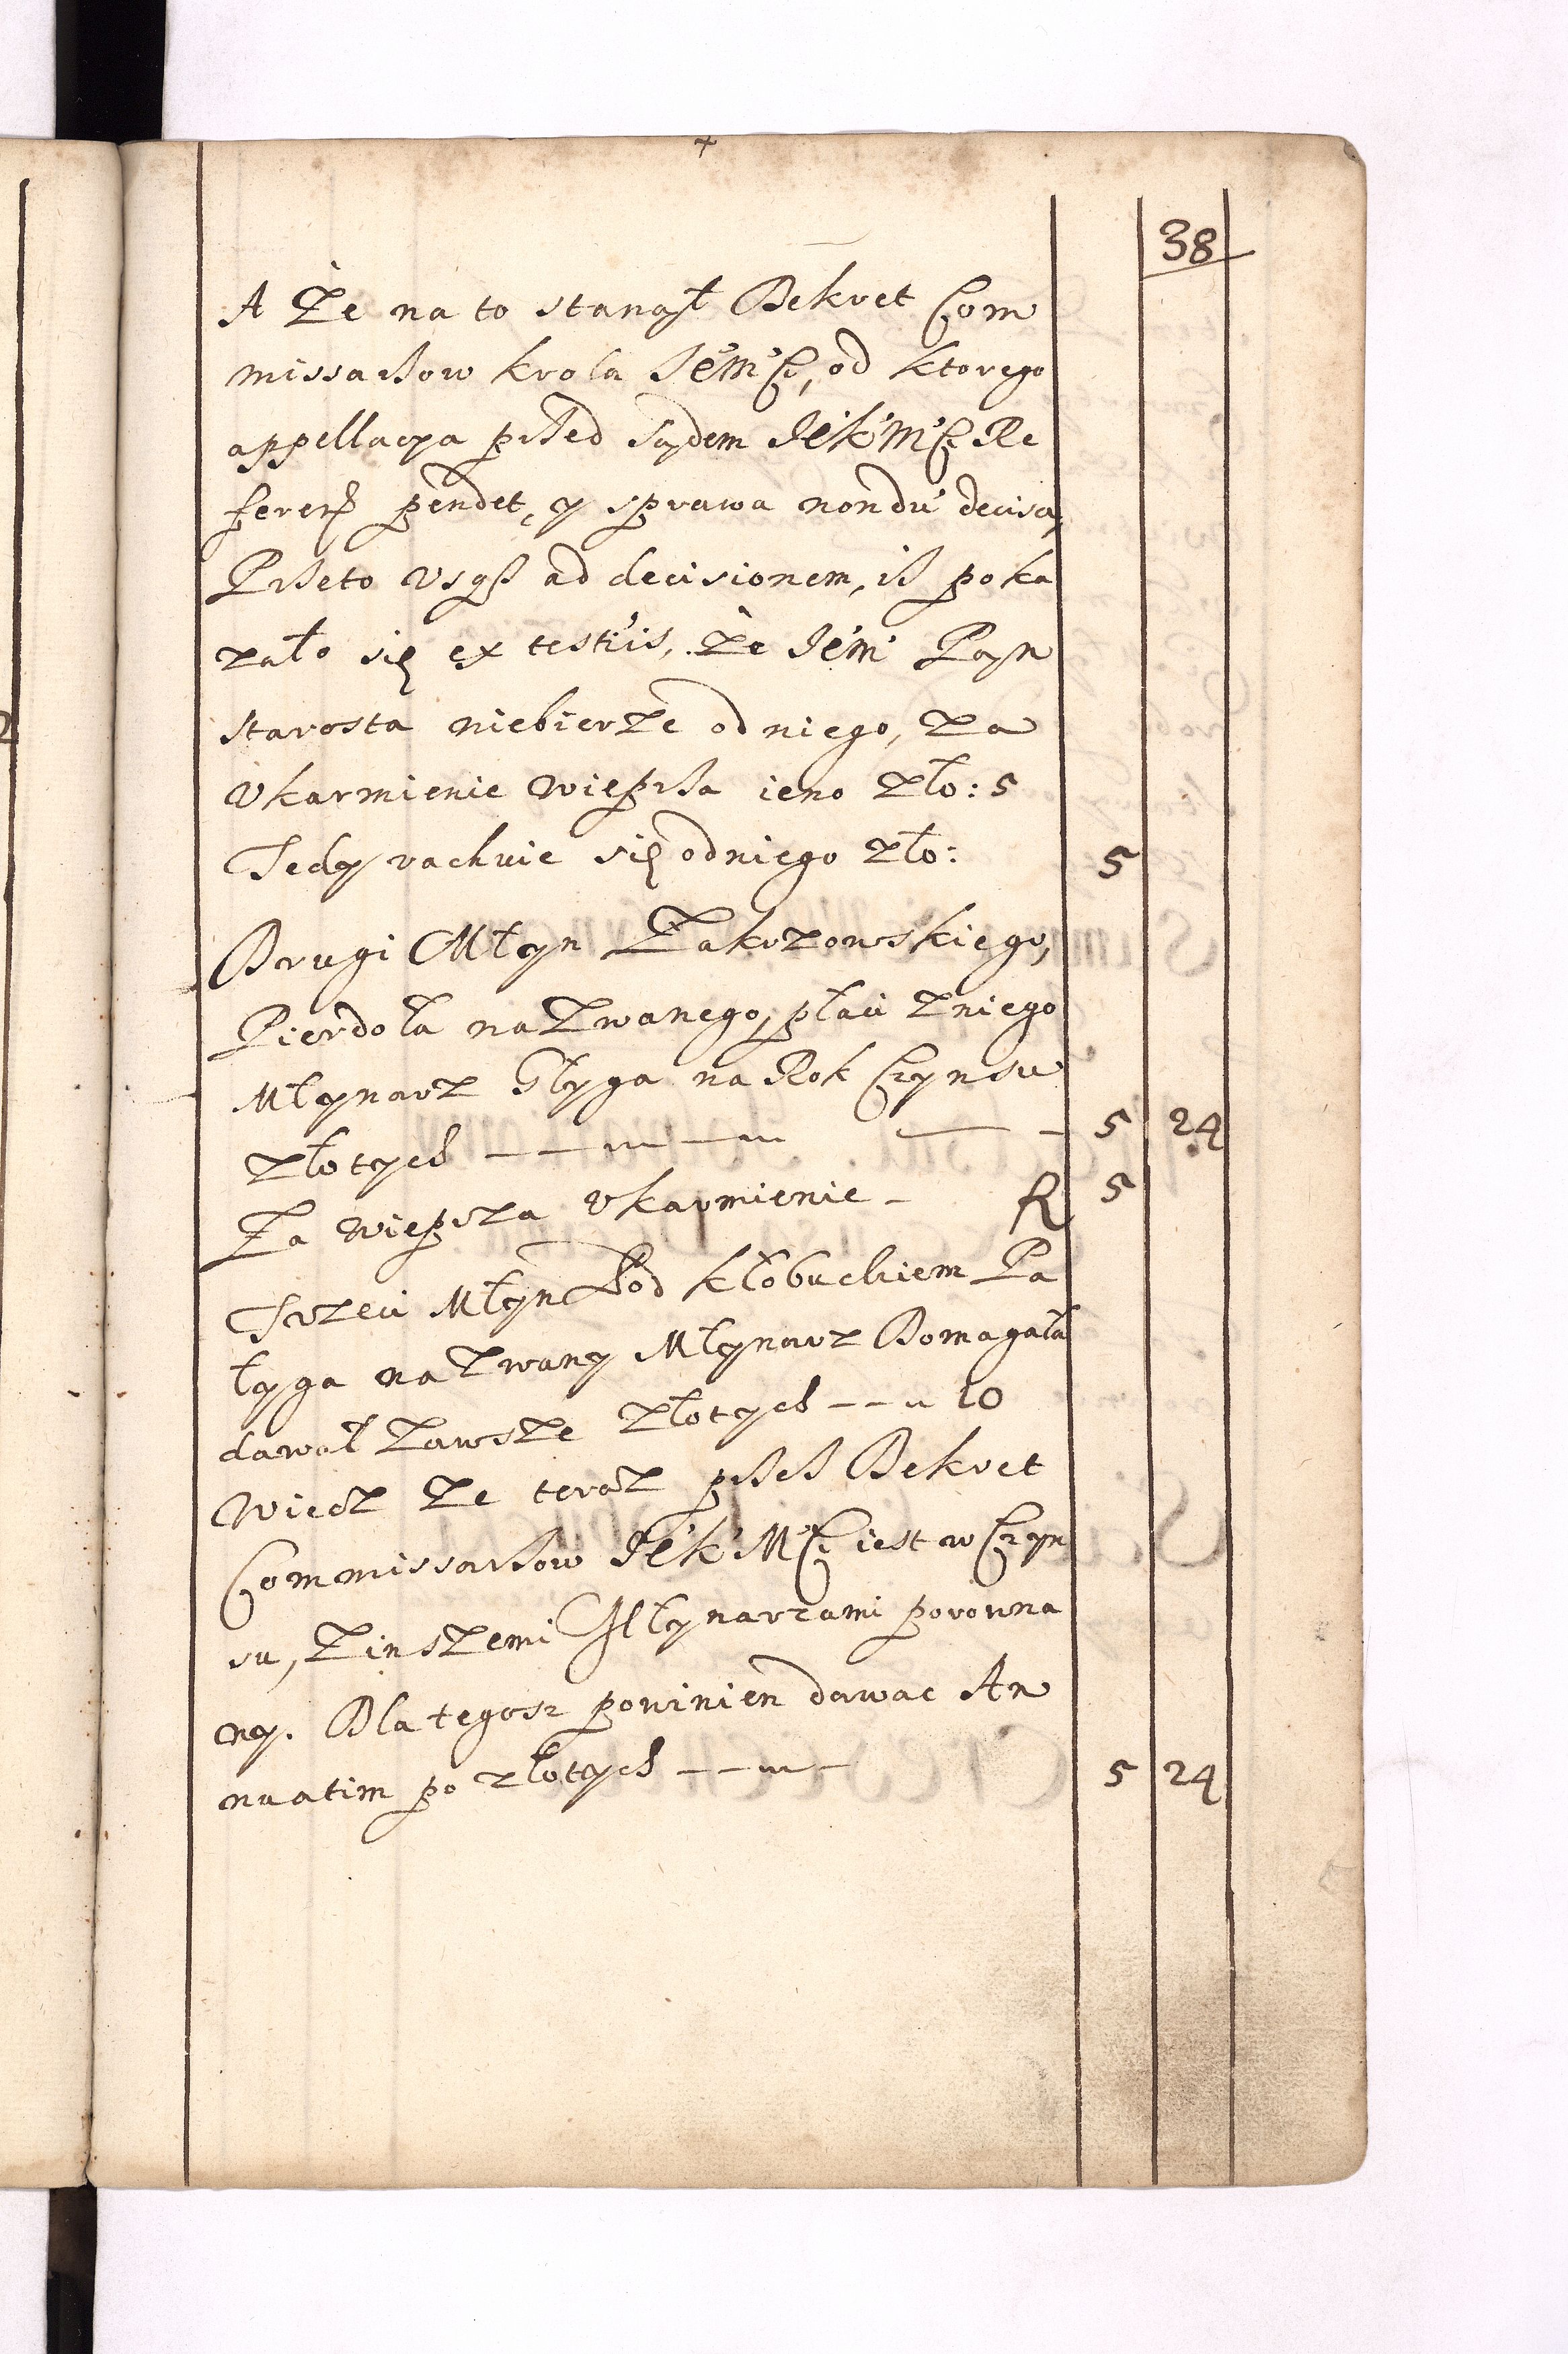 38
A Że na to stanął Dekret Com
missarzow krola Jė'M'Ci, od ktorego
appellacya przed sądem JėK'M'Ci Re
feren pendet, y sprawa nondu' decisa,
Przeto vsq ad decisionem, iż poka
zało się ex testi'is, Że Jėm' Pąn
starosta niebierże od niego, za
Vkarmienie wieprza ieno zło: 5
Tedy rachuie się odniego zło: 5
Drugi Młyn Zakrzowskiego,
Pierdoła nazwanego, płaci zniego
Młynarz Głyga na Rok Czynsu
złotych — — — — 5 24
Za wieprza Vkarmienie - R 5
Trzeci Młyn Pod kłobuckiem Pa
łyga nazwany Młynarz Domagała
dawał zawsze złotych - - - 10
Wiecz że teraz przez Dekret
Commissarzow JėK'M'Ci iest w Czyn
su, zinszemi Młynarzami porowna
ny. Dla tegosz powinien dawac An
nuatim po złotych - - - 5 24